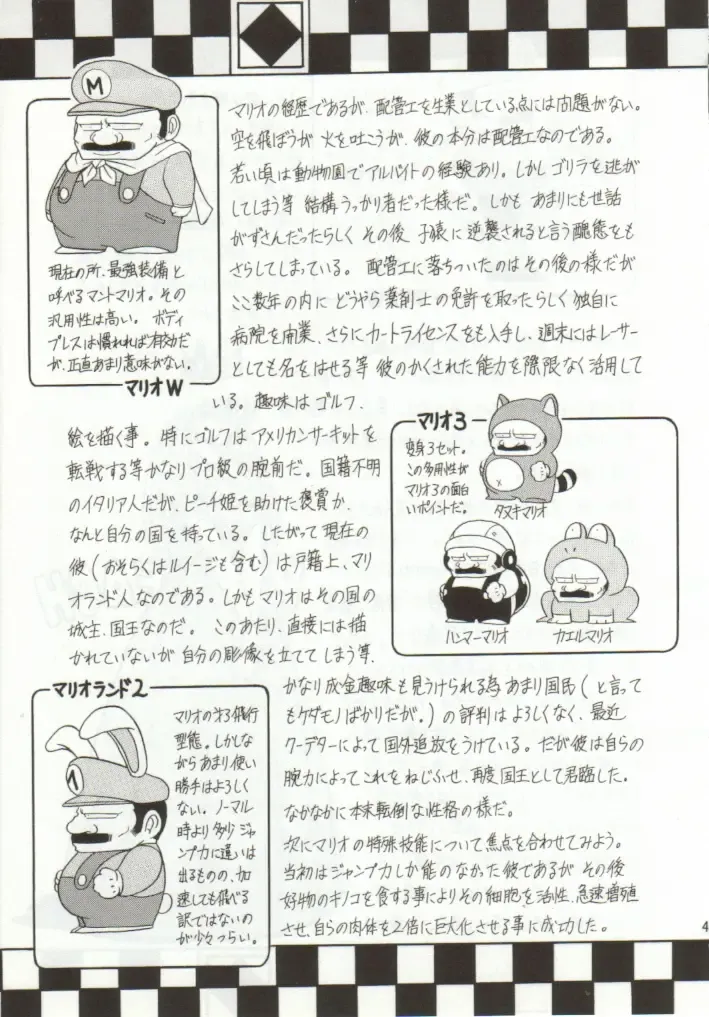 マリオの経歴であるが、配管工を生業としている点には問題がない。
空を飛ぼうが火を吐こうが、彼の本分は配管工なのである。
若い頃は動物園でアルバイトの経験あり。しかしゴリラを逃が
してしまう等 結構うっかり者だった様だ。しかも あまりにも世話
がずさんだったらしく その後 子猿に逆襲されると言う醜態をも
さらしてしまっている。 配管工に落ちついたのはその後の様だが
ここ数年の内に どうやら薬剤士の免許を取ったらしく 独自に
病院を開業、さらにカートライセンスをも入手し、週末にはレーサー
としても名をはせる等 彼のかくされた能力を際限なく活用して
いる。趣味はゴルフ、
絵を描く事。特にゴルフはアメリカンサーキットを
転戦する等かなりプロ級の腕前だ。国籍不明
のイタリア人だが、ピーチ姫を助けた褒賞か、
なんと自分の国を持っている。したがって現在の
彼(おそらくはルイージも含む)は戸籍上、マリ
オランド人なのである。しかもマリオはその国の
城主、国王なのだ。 このあたり、直接には描
かれていないが 自分の彫像を立ててしまう等、
かなり成金趣味も見うけられる為 あまり国民(と言って
もケダモノばかりだが。)の評判はよろしくなく、最近
クーデターによって国外追放をうけている。だが彼は自らの
腕力によってこれをねじふせ、再度国王として君臨した。
なかなかに本末転倒な性格の様だ。
次にマリオの特殊技能について焦点を合わせてみよう。
当初はジャンプ力しか能のなかった彼であるが その後
好物のキノコを食する事によりその細胞を活性、急速増殖
させ、自らの肉体を2倍に巨大化させる事に成功した。
M
現在の所、最強装備と
呼べるマントマリオ。その
汎用性は高い。ボディ
プレスは慣れれば有効だ
が、正直あまり意味がない。
マリオW
マリオ3
変身3セット。
この多用性が
マリオ3の面白
いポイントだ。
タヌキマリオ
ハンマーマリオ
カエルマリオ
マリオランド2
マリオの第3飛行
型態。しかしな
がらあまり使い
勝手はよろしく
ない。ノーマル
時より多少ジャ
ンプ力に違いは
出るものの、加
速しても飛べる
訳ではないの
が少々つらい。
4